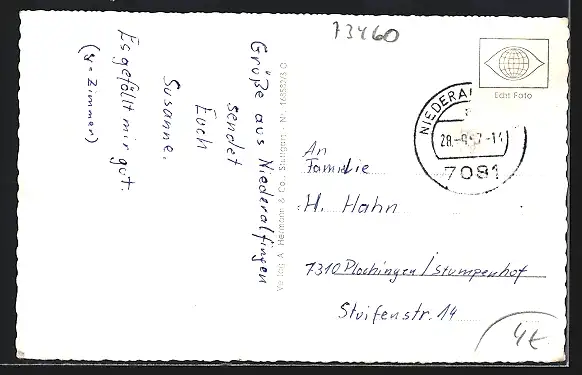 73460
Grüße aus Niederalfingen
sendet
Euch
Susanne.
Es gefällt mir gut.
(4-Zimmer)
Verlag A. Heumann & Co., Stuttgart - Nr.
Echt Foto
7081
An
Familie
H. Hahn
7310 Plochingen/Stumpenhof
Stuifenstr. 14
4€